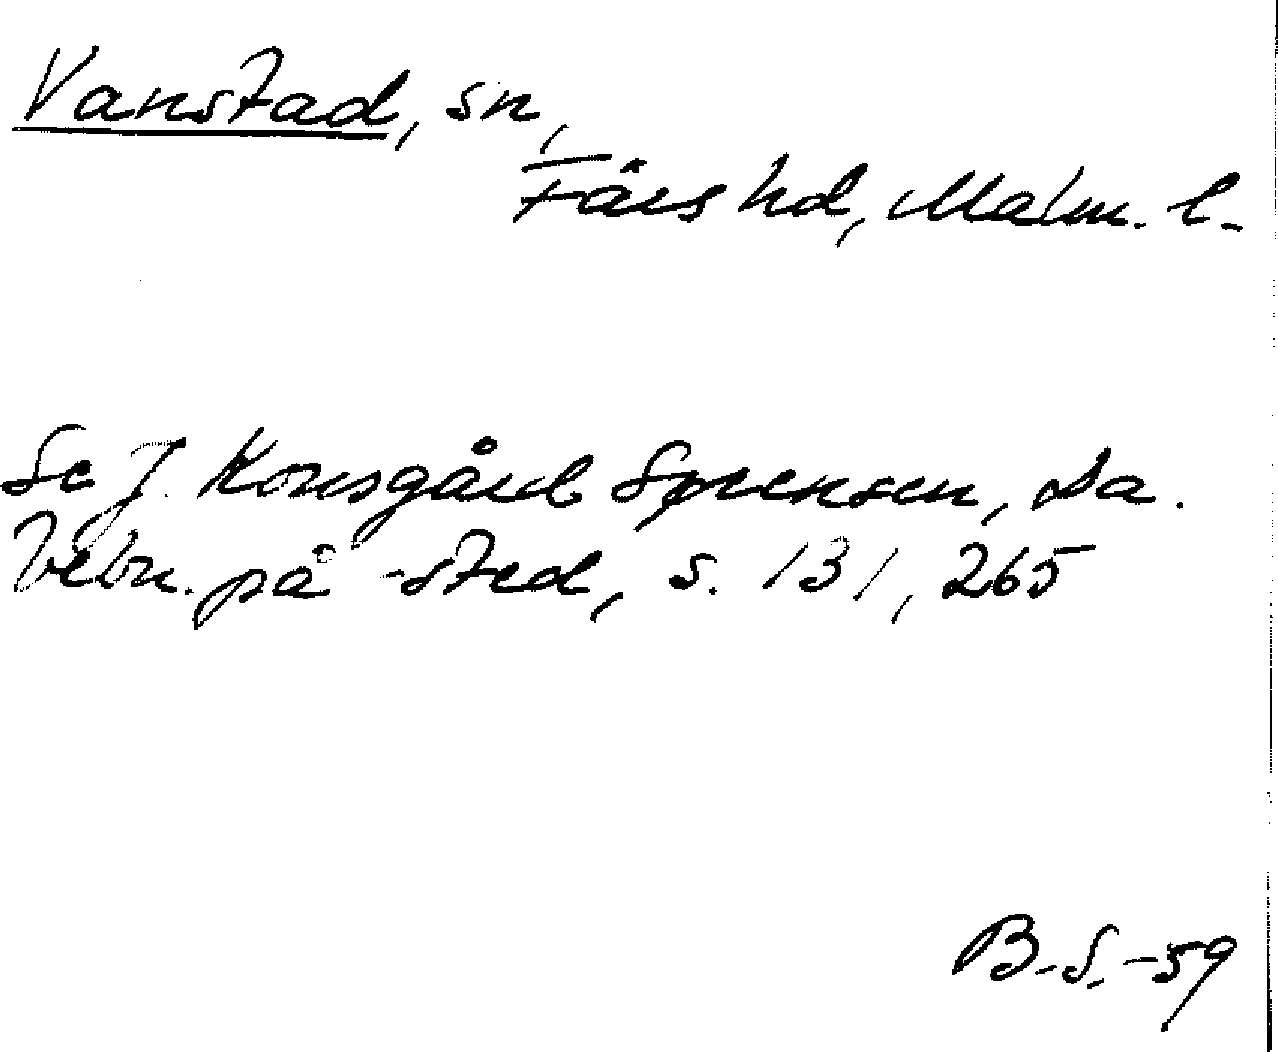 Vanstad, sn,
Färs hd, Malm. l.
Se J. Kousgård Sørensen, Da.
bebn. på -sted, s. 131, 265
B.S. -59